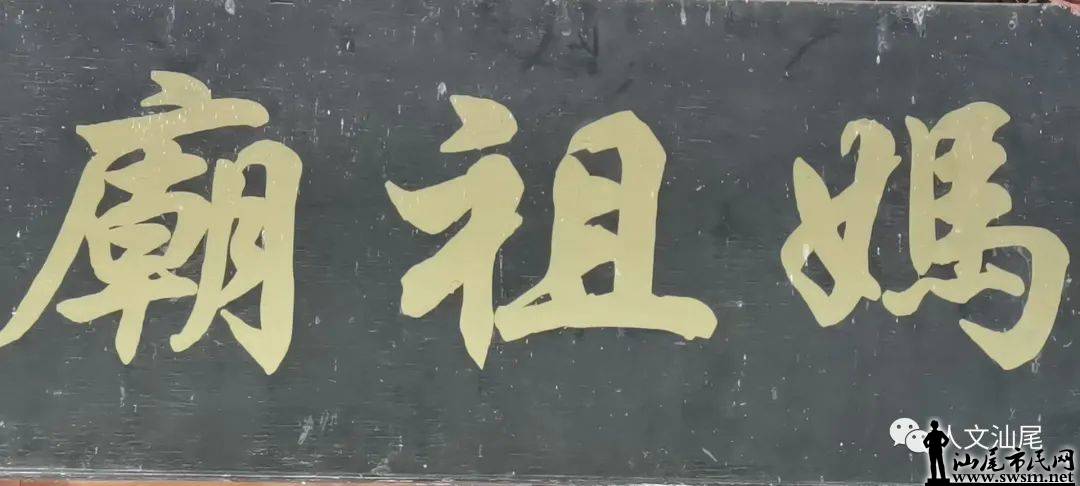 媽祖廟
人文汕尾
汕尾市民网
www.swsm.net